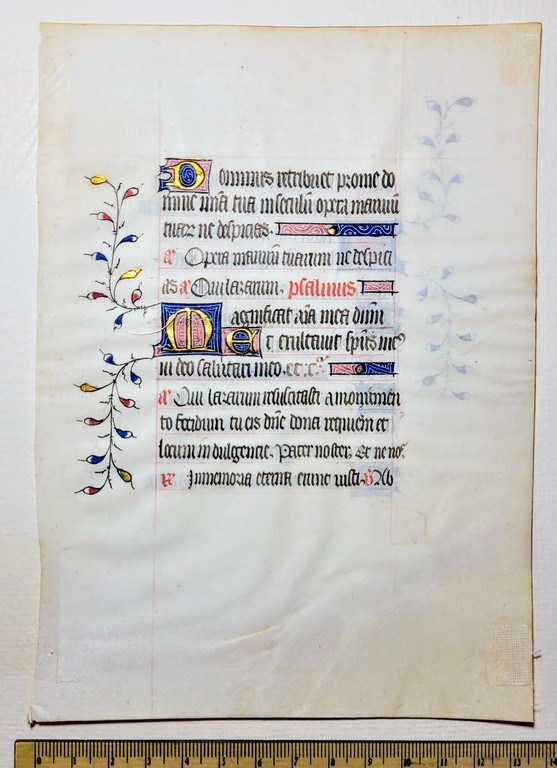 Dominus retribuet prome do
mine mīa tua in seculū opera manuū
tuar ne despicias.
a Opera manuū tuarum ne despici
as a Qui lazarum. psalmus
Magnificat aīa mea dūm
Et exultavit spūs me9
in deo salutari meo. et c̄.
a Qui lazarum resuscitasti a monumen
to fetidum tu eis dn̄e dona requiem et
locum indulgencie. Pater noster. Et ne nos
In memoria eterna erunt iusti. Ab
0 1 2 3 4 5 6 7 8 9 10 11 12 13